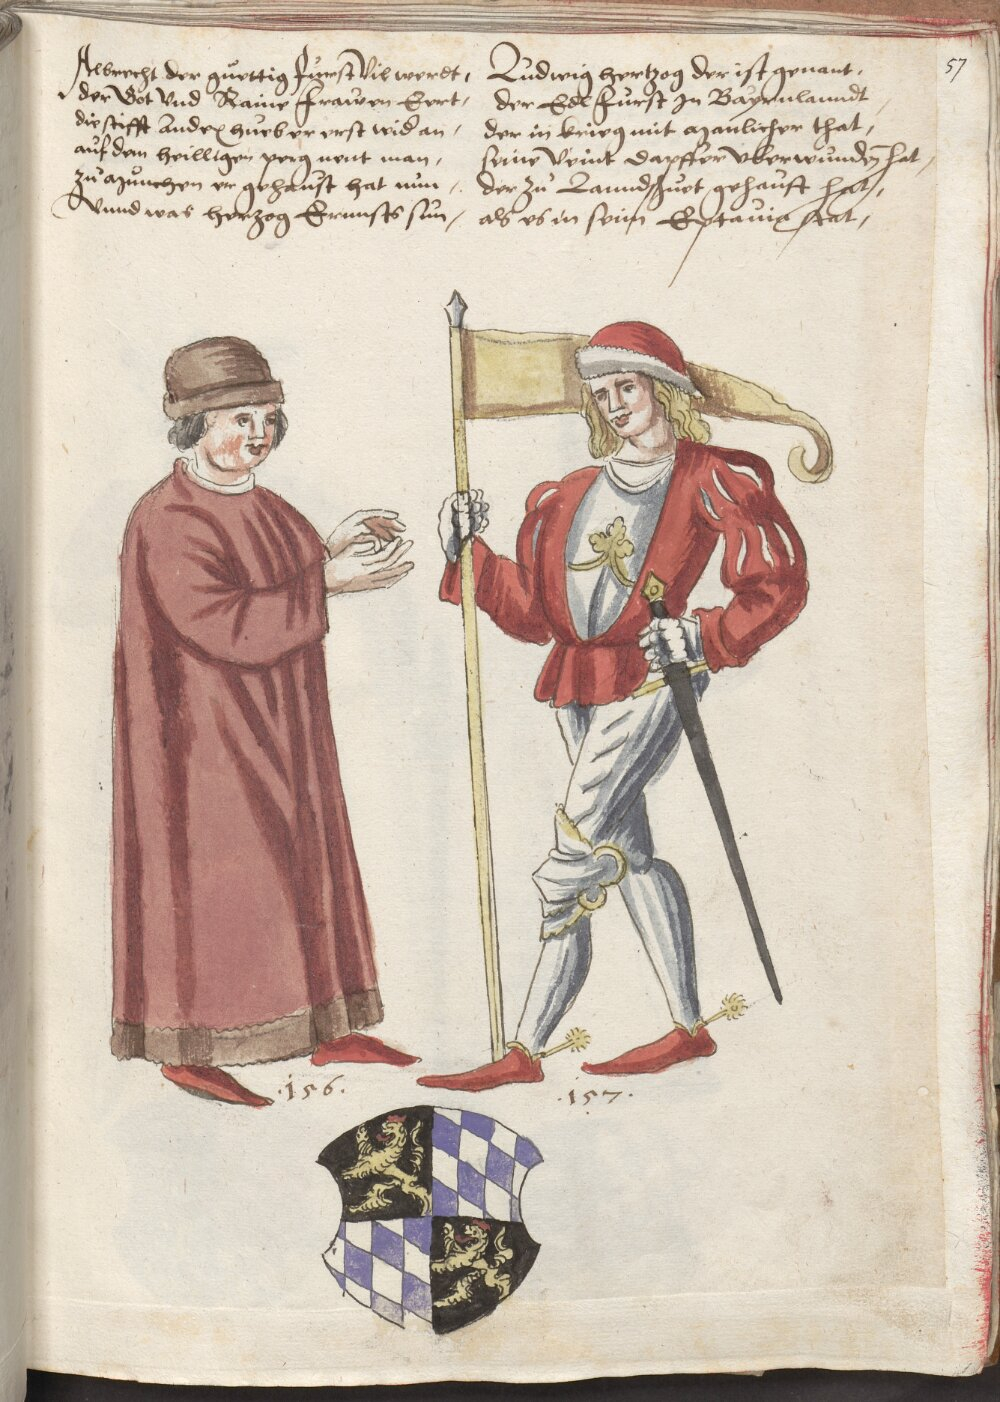 57
Albrecht der guettig Fürst Vil werdt,
der Got Vnd Raine Frawen Eert,
die stifft Andex hueb er erst wid an,
auf dem heilligen perg nent man,
Zu München er gehaust hat nun,
Vnnd was hertzog Ernnsts sun,
Ludwig hertzog der ist genant,
der Edl Furst In Bayrnlanndt
der in krieg mit manlicher that,
seine Veint dapffer vberwunden hat,
der zu Lanndshuet gehaust hat,
als es in seim stat,
.156.
.157.